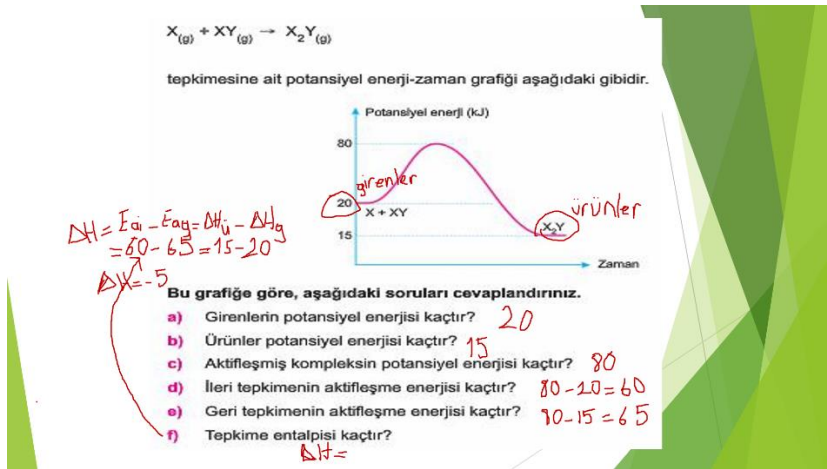 X(g) + XY(g) → X₂Y(g)
tepkimesine ait potansiyel enerji-zaman grafiği aşağıdaki gibidir.
Potansiyel enerji (kJ)
80
girenler
20
X + XY
ürünler
X₂Y
15
Zaman
ΔH = Eai - Eag = ΔHü - ΔHg
= 60 - 65 = 15 - 20
ΔH = -5
Bu grafiğe göre, aşağıdaki soruları cevaplandırınız.
a) Girenlerin potansiyel enerjisi kaçtır? 20
b) Ürünler potansiyel enerjisi kaçtır? 15
c) Aktifleşmiş kompleksin potansiyel enerjisi kaçtır? 80
d) İleri tepkimenin aktifleşme enerjisi kaçtır? 80-20=60
e) Geri tepkimenin aktifleşme enerjisi kaçtır? 80-15=65
f) Tepkime entalpisi kaçtır?
ΔH=